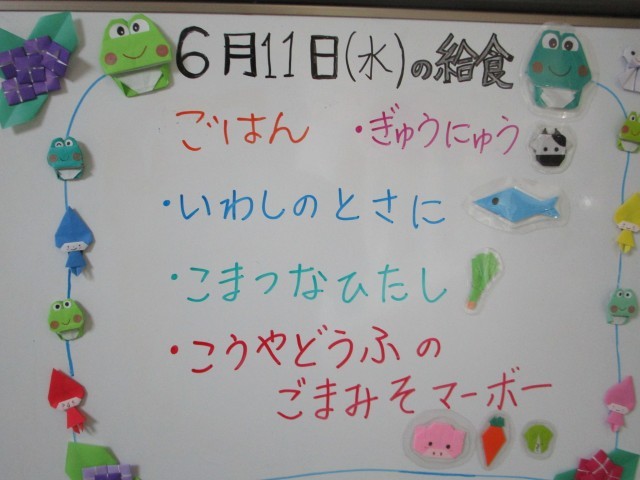 6月11日(水)の給食
ごはん ・ぎゅうにゅう
・いわしのとさに
・こまつなひたし
・こうやどうふの
ごまみそマーボー